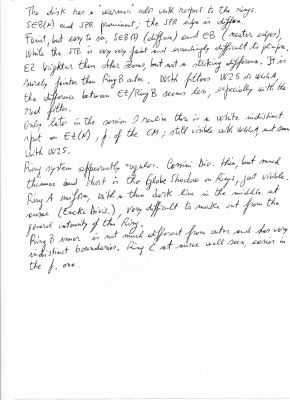 The disk has a "warmer" color with respect to the rings.
SEB(N) and SPR prominent; the SPR edge is diffuse.
Faint, but easy to see, SEB(S) (diffuse) and EB (neater edges),
while the STB is very very faint and exceedingly difficult to glimpse.
EZ brighter then other zones, but not a striking difference. It is
surely fainter than Ring B outer. With filters W25 and W80A,
the difference between EZ/Ring B seems less, especially with the
red filter.
Only later in the session I realize there is a white indistinct
spot on EZ(N), f. of the CM; still visible with W80A, not seen
with W25.
Ring system apparently regular. Cassini Div. thin, but much
thinner and short is the Globe Shadow on Rings, just visible.
Ring A uniform, with a thin dark line in the middle at
ansae (Encke Divis.), very difficult to make out from the
general intensity of this Ring.
Ring B inner is not much different from outer and has very
indistinct boundaries. Ring C at ansae well seen, easier in
the f. one.